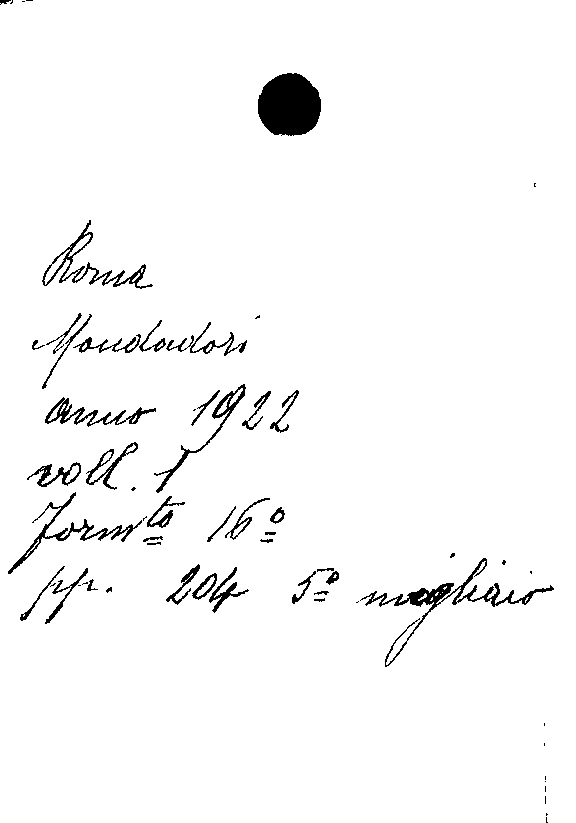 Roma
Mondadori
anno 1922
voll. 1
form.to 16º
pp. 204 5º migliaio